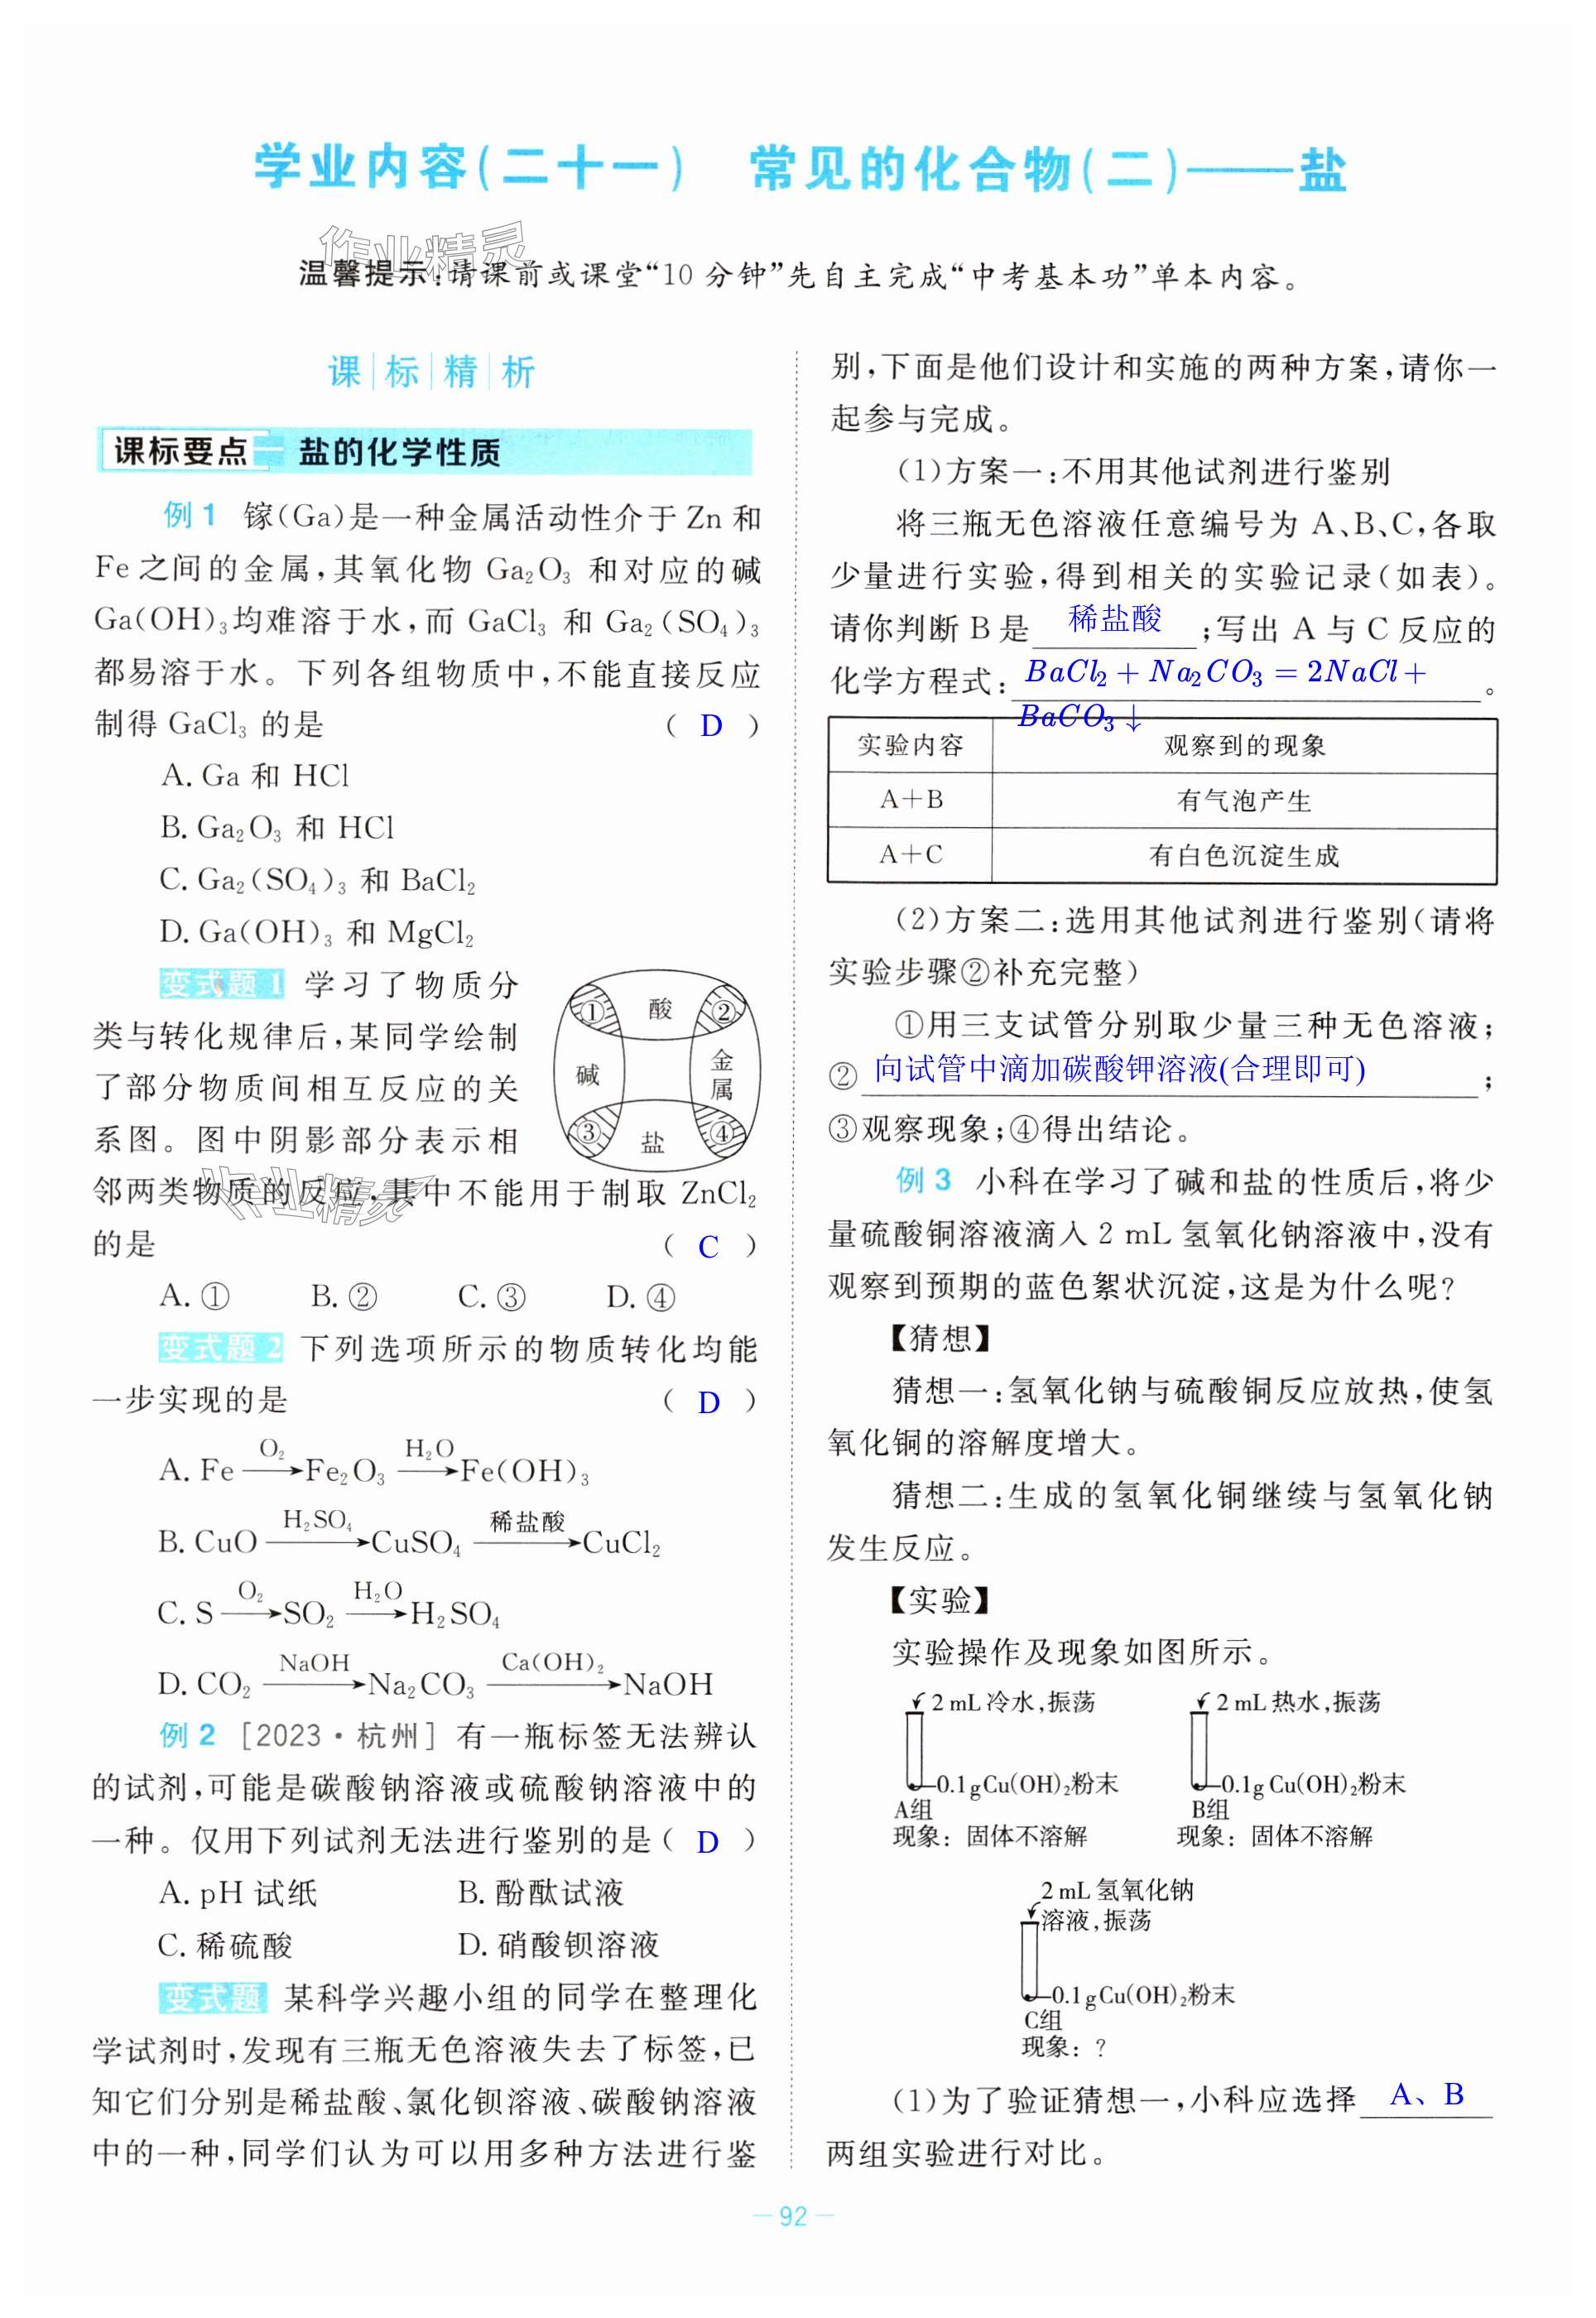 学业内容(二十一) 常见的化合物(二)——盐
作业精灵
温馨提示:请课前或课堂“10 分钟”先自主完成“中考基本功”单本内容。
课标精析
课标要点一 盐的化学性质
例 1 镓(Ga)是一种金属活动性介于 Zn 和
Fe 之间的金属,其氧化物 Ga₂O₃ 和对应的碱
Ga(OH)₃均难溶于水,而 GaCl₃ 和 Ga₂(SO₄)₃
都易溶于水。下列各组物质中,不能直接反应
制得 GaCl₃ 的是 ( D )
A. Ga 和 HCl
B. Ga₂O₃ 和 HCl
C. Ga₂(SO₄)₃ 和 BaCl₂
D. Ga(OH)₃ 和 MgCl₂
变式题 1 学习了物质分
类与转化规律后,某同学绘制
了部分物质间相互反应的关
系图。图中阴影部分表示相
邻两类物质的反应,其中不能用于制取 ZnCl₂
的是 ( C )
① 酸 ②
碱 金属
③ 盐 ④
作业精灵
A. ① B. ② C. ③ D. ④
变式题 2 下列选项所示的物质转化均能
一步实现的是 ( D )
A. Fe —O₂→ Fe₂O₃ —H₂O→ Fe(OH)₃
B. CuO —H₂SO₄→ CuSO₄ —稀盐酸→ CuCl₂
C. S —O₂→ SO₂ —H₂O→ H₂SO₄
D. CO₂ —NaOH→ Na₂CO₃ —Ca(OH)₂→ NaOH
例 2 [2023·杭州] 有一瓶标签无法辨认
的试剂,可能是碳酸钠溶液或硫酸钠溶液中的
一种。仅用下列试剂无法进行鉴别的是( D )
A. pH 试纸 B. 酚酞试液
C. 稀硫酸 D. 硝酸钡溶液
变式题 某科学兴趣小组的同学在整理化
学试剂时,发现有三瓶无色溶液失去了标签,已
知它们分别是稀盐酸、氯化钡溶液、碳酸钠溶液
中的一种,同学们认为可以用多种方法进行鉴
别,下面是他们设计和实施的两种方案,请你一
起参与完成。
(1)方案一:不用其他试剂进行鉴别
将三瓶无色溶液任意编号为 A、B、C,各取
少量进行实验,得到相关的实验记录(如表)。
请你判断 B 是 稀盐酸 ;写出 A 与 C 反应的
化学方程式: BaCl₂ + Na₂CO₃ = 2NaCl +
BaCO₃↓ 。
实验内容 观察到的现象
A+B 有气泡产生
A+C 有白色沉淀生成
(2)方案二:选用其他试剂进行鉴别(请将
实验步骤②补充完整)
①用三支试管分别取少量三种无色溶液;
② 向试管中滴加碳酸钾溶液(合理即可) ;
③观察现象;④得出结论。
例 3 小科在学习了碱和盐的性质后,将少
量硫酸铜溶液滴入 2 mL 氢氧化钠溶液中,没有
观察到预期的蓝色絮状沉淀,这是为什么呢?
【猜想】
猜想一:氢氧化钠与硫酸铜反应放热,使氢
氧化铜的溶解度增大。
猜想二:生成的氢氧化铜继续与氢氧化钠
发生反应。
【实验】
实验操作及现象如图所示。
2 mL 冷水,振荡
0.1 g Cu(OH)₂粉末
A组
现象:固体不溶解
2 mL 热水,振荡
0.1 g Cu(OH)₂粉末
B组
现象:固体不溶解
2 mL 氢氧化钠
溶液,振荡
0.1 g Cu(OH)₂粉末
C组
现象:?
(1)为了验证猜想一,小科应选择 A、B
两组实验进行对比。
— 92 —